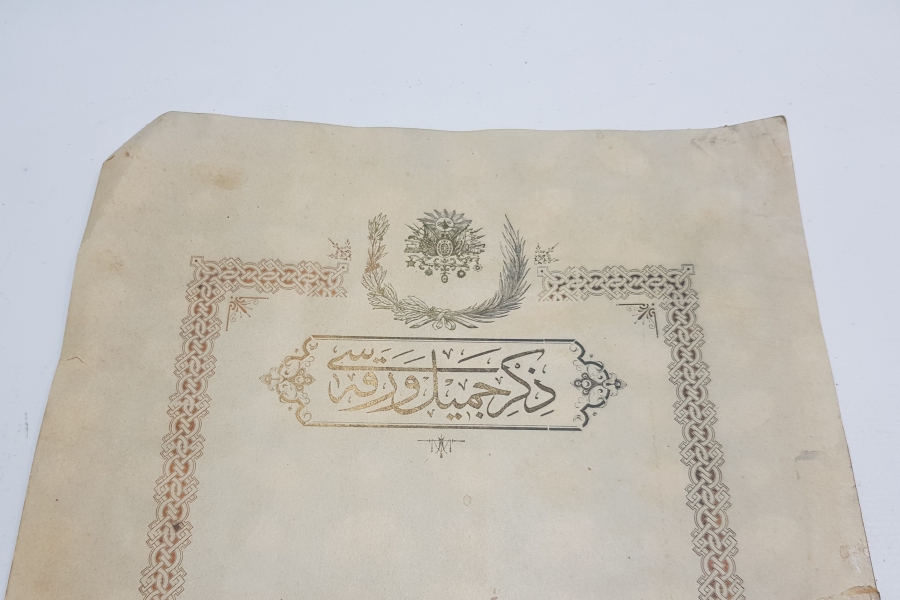 ذكر جميل ورقه سی